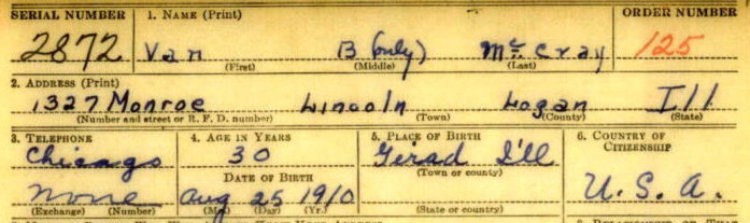 SERIAL NUMBER 1. NAME (Print) ORDER NUMBER
2872 Van B (only) McCray 125
(First) (Middle) (Last)
2. ADDRESS (Print)
1327 Monroe Lincoln Logan Ill
(Number and street or R. F. D. number) (Town) (County) (State)
3. TELEPHONE 4. AGE IN YEARS 5. PLACE OF BIRTH 6. COUNTRY OF
CITIZENSHIP
Chicago 30 Girad Ill
DATE OF BIRTH (Town or county)
none Aug 25 1910 U. S. A.
(Exchange) (Number) (Mo.) (Day) (Yr.) (State or country)